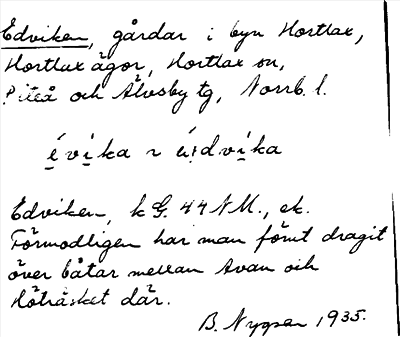 Edviken, gårdar i byn Hortlax,
Hortlax ägor, Hortlax sn,
Piteå och Älvsby tg, Norrb. l.
évika ~ údvíka
Edviken, k G. 44 NM., ek.
Förmodligen har man förut dragit
över båtar mellan Avan och
Höträsket där.
B. Nygren 1935.